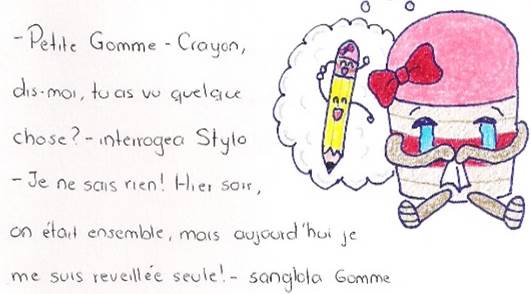 - Petite Gomme - Crayon,
dis-moi, tu as vu quelque
chose? - interrogea Stylo
- Je ne sais rien! Hier soir,
on était ensemble, mais aujourd'hui je
me suis reveillée seule! - sanglota Gomme